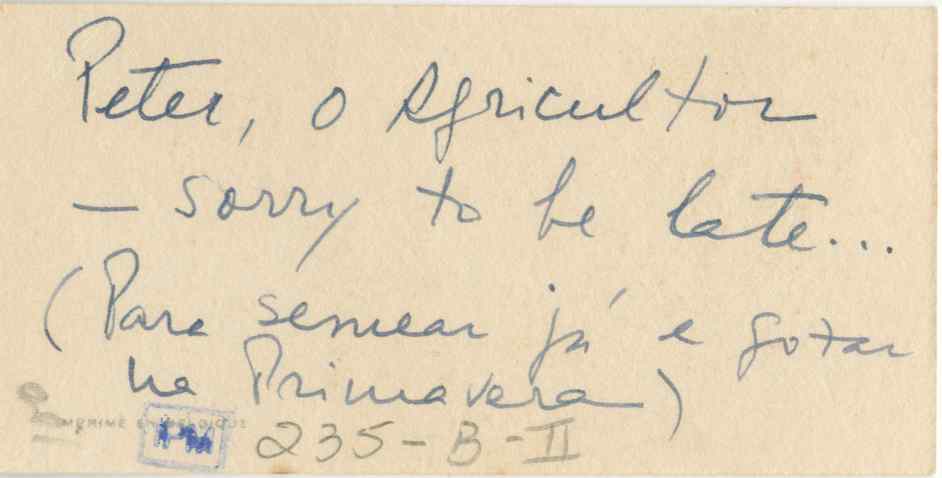 Peter, o Agricultor
— sorry to be late...
(Para semear já e gozar
na Primavera)
IMPRIMÉ EN BELGIQUE
235-B-II